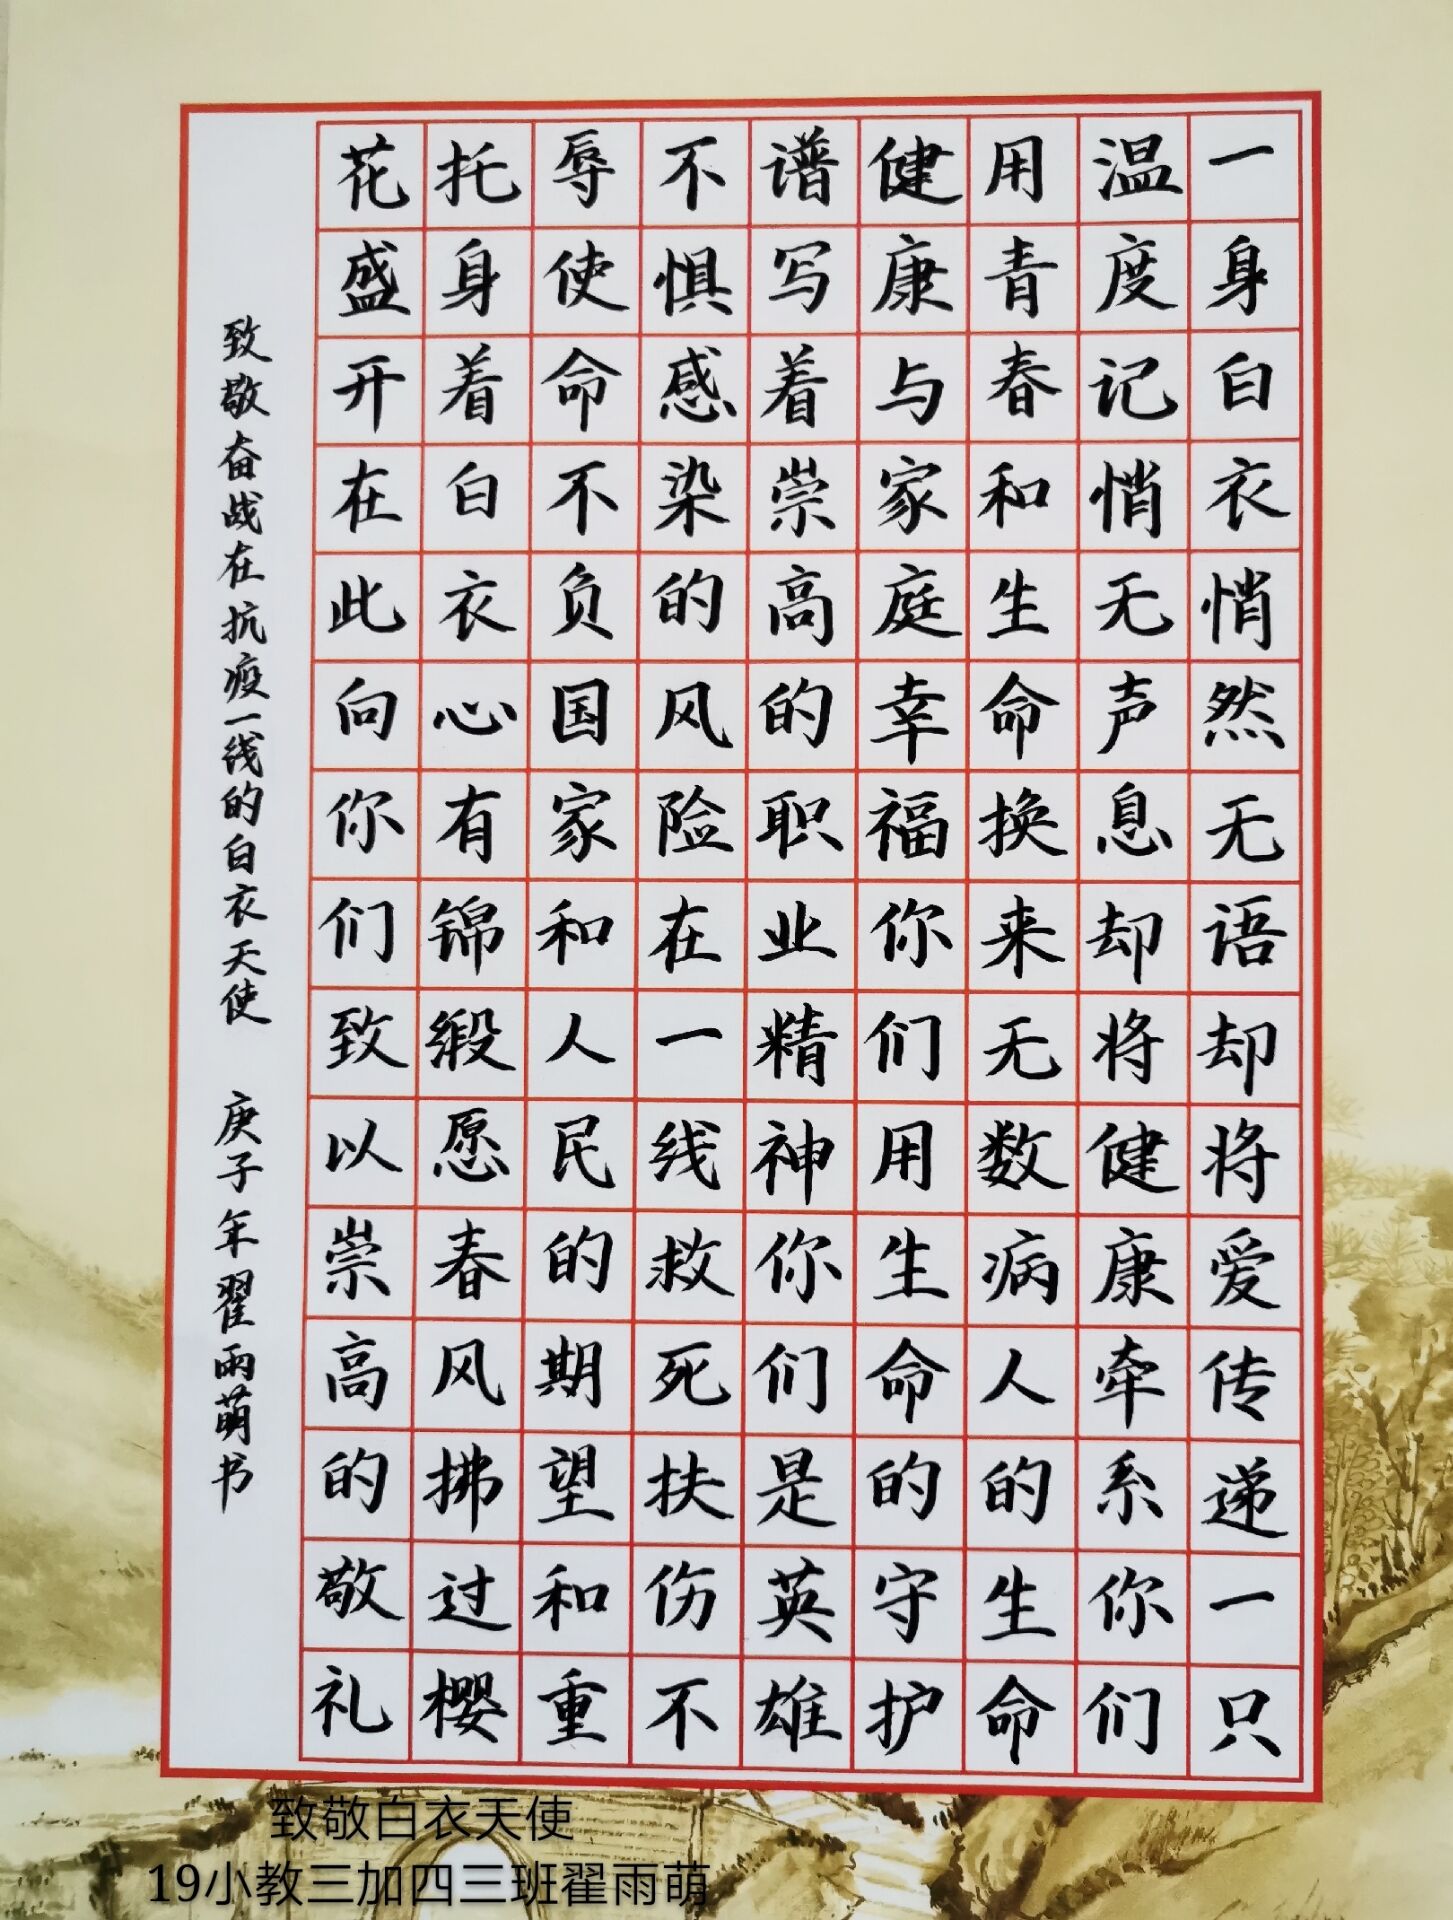 一身白衣悄然无语却将爱传递一只
温度记悄无声息却将健康牵系你们
用青春和生命换来无数病人的生命
健康与家庭幸福你们用生命的守护
谱写着崇高的职业精神你们是英雄
不惧感染的风险在一线救死扶伤不
辱使命不负国家和人民的期望和重
托身着白衣心有锦缎愿春风拂过樱
花盛开在此向你们致以崇高的敬礼
致敬奋战在抗疫一线的白衣天使 庚子年翟雨萌书
致敬白衣天使
19小教三加四三班翟雨萌